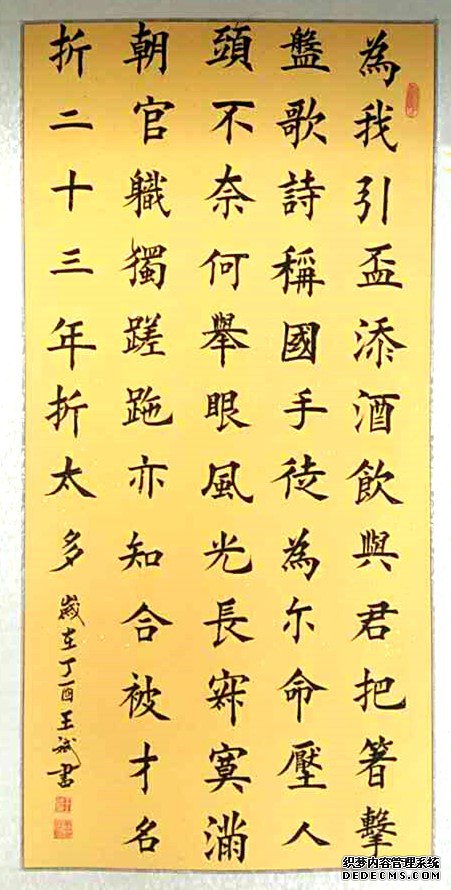 為我引盃添酒飲與君把箸擊
盤歌詩稱國手徒為尔命壓人
頭不奈何舉眼風光長寂寞滿
朝官職獨蹉跎亦知合被才名
折二十三年折太多
歲在丁酉王斌書
织梦内容管理系统
DEDECMS.COM